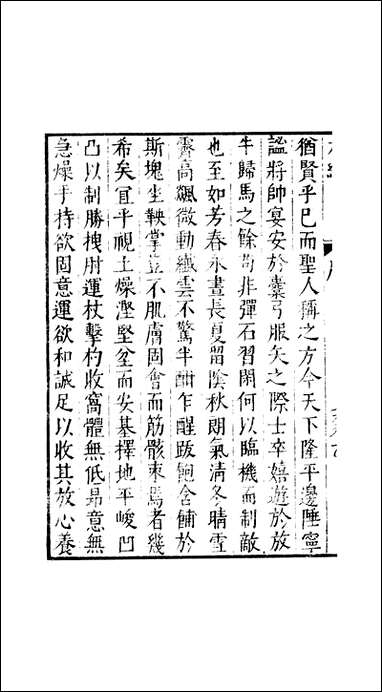 猶賢乎巳而聖人稱之方今天下隆平邊陲寧
謐將帥宴安於櫜弓服矢之際士卒嬉遊於放
牛歸馬之餘苟非彈石習閑何以臨機而制敵
也至如芳春永晝長夏留陰秋朗氣清冬晴雪
霽高飆微動纖雲不驚半酣乍醒跋飽舍餔於
斯塊坐鞅掌豈不肌膚固㑹而筋骸束焉者幾
希矣宜乎視土燥溼堅坌而安基擇地平峻凹
凸以制勝拽肘運杖擊杓收窩體無低昻意無
急燥手持欲固意運欲和誠足以收其放心養